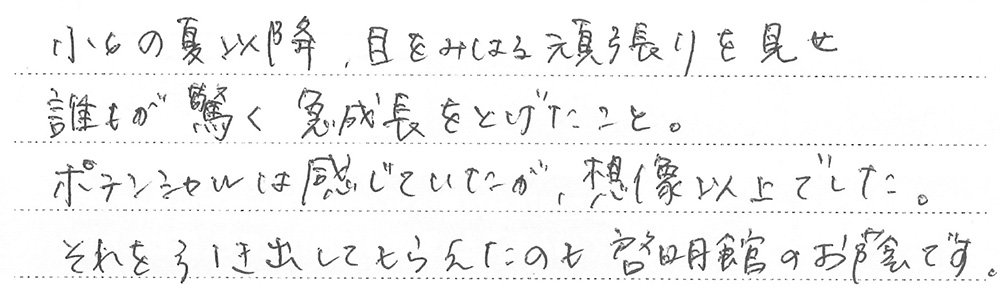 小6の夏以降、目をみはる頑張りを見せ
誰もが驚く急成長をとげたこと。
ポテンシャルは感じていたが、想像以上でした。
それを引き出してもらえたのも啓明館のお陰です。